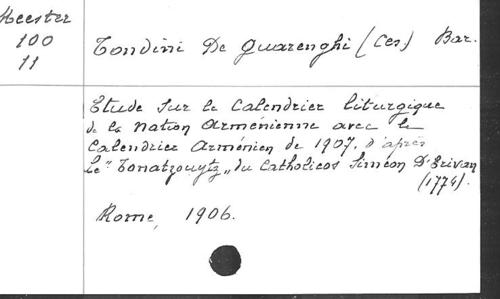 Meester
100
11
Tondini De Quarenghi (Ces) Bar.
Etude sur le Calendrier liturgique
de la nation Arménienne avec le
Calendrier Arménien de 1907, d'après
le "Tonatzouytz" du Catholicos Siméon D'Erivan
(1774).
Rome, 1906.